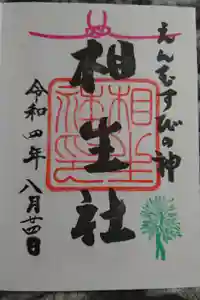 えんむすびの神
相生社
令和四年 八月廿四日